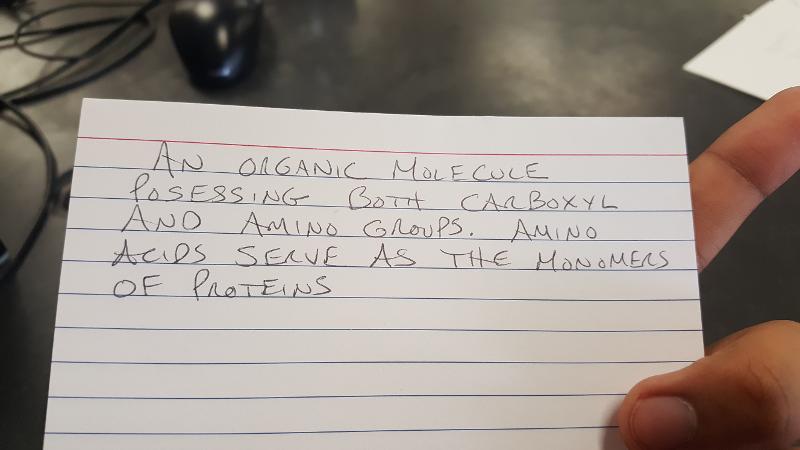 AN ORGANIC MOLECULE
POSESSING BOTH CARBOXYL
AND AMINO GROUPS. AMINO
ACIDS SERVE AS THE MONOMERS
OF PROTEINS